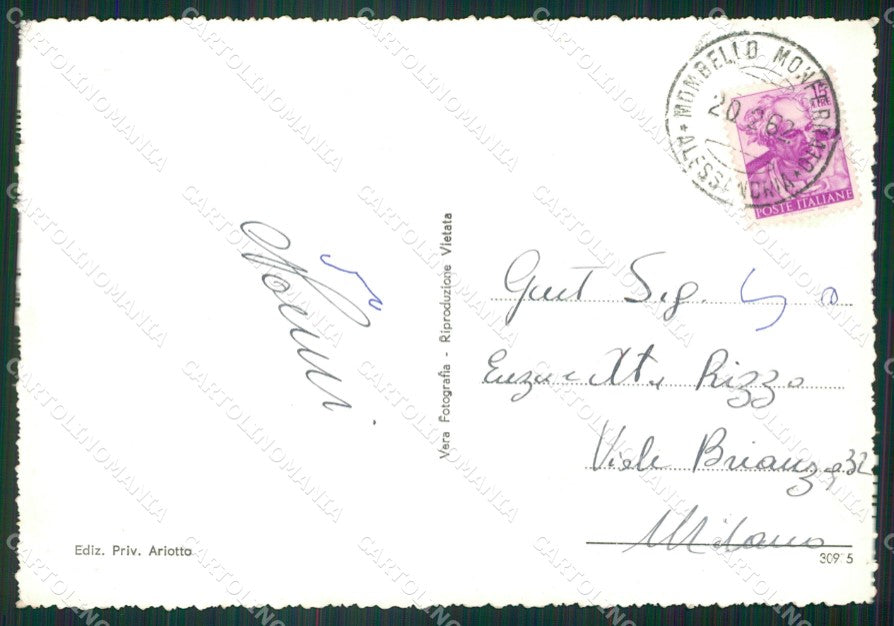 MOMBELLO MONFERRATO
20.2.62
* ALESSANDRIA *
POSTE ITALIANE
Vera Fotografia - Riproduzione Vietata
Gent Sig.
Rizzo
Viale Brianza 32
Milano
Ediz. Priv. Ariotto
CARTOLINOMANIA